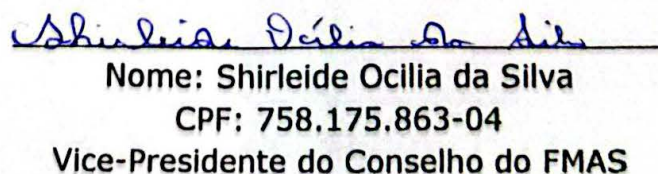 Shirleide Ocília da Silva
Nome: Shirleide Ocilia da Silva
CPF: 758.175.863-04
Vice-Presidente do Conselho do FMAS